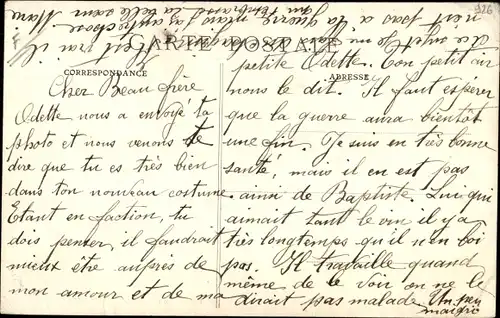 CARTE POSTALE
CORRESPONDANCE
ADRESSE
Cher Beau frère
Odette nous a envoyé ta
photo et nous venons te
dire que tu es très bien
dans ton nouveau costume.
Etant en faction, tu
dois penser, il faudrait
mieux être auprès de
mon amour et de ma
petite Odette. Ton petit air
nous le dit. Il faut espérer
que la guerre aura bientôt
une fin. Je suis en très bonne
santé, mais il en est pas
ainsi de Baptiste. Lui qui
aimait tant le vin il y a
très longtemps qu'il n'en boi
pas. Il travaille quand
même de le voir on ne le
dirait pas malade. Un peu
maigri
n'est pas a la guerre mais
la belle sœur
Marie